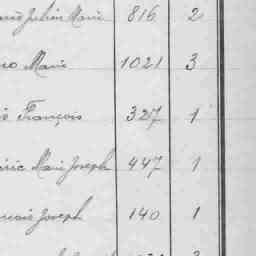 Julien Marie 816 2
Marie 1021 3
François 327 1
Marie Joseph 447 1
Joseph 140 1